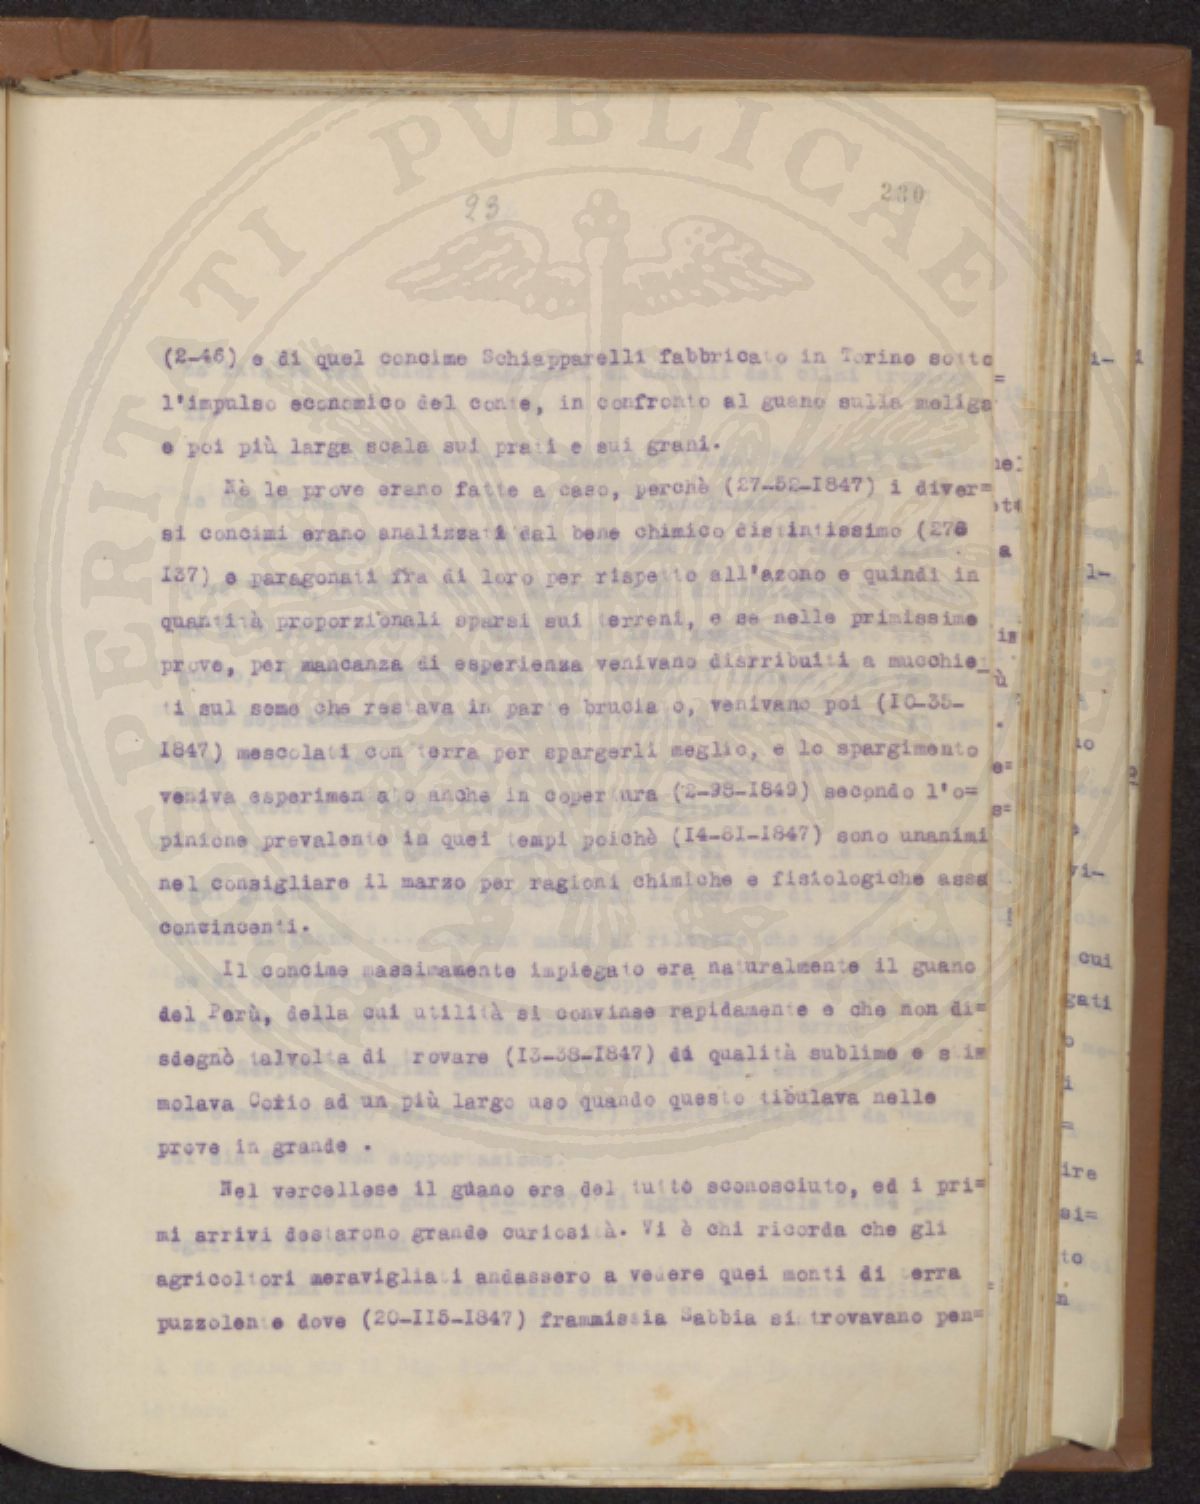 PERITATI PVBLICAE
23
280
(2-46) e di quel concime Schiapparelli fabbricato in Torino sotto
l'impulso economico del conte, in confronto al guano sulla meliga
e poi più larga scala sui prati e sui grani.
Nè le prove erano fatte a caso, perchè (27-52-I847) i diver=
si concimi erano analizzati dal bene chimico distintissimo (276
I37) e paragonati fra di loro per rispetto all'azono e quindi in
quantità proporzionali sparsi sui terreni, e se nelle primissime
prove, per mancanza di esperienza venivano disrribuiti a mucchie_
ti sul seme che restava in parte bruciato, venivano poi (I0-35-
I847) mescolati con terra per spargerli meglio, e lo spargimento
veniva esperimentato anche in copertura (2-98-I849) secondo l'o=
pinione prevalente in quei tempi poichè (I4-81-I847) sono unanimi
nel consigliare il marzo per ragioni chimiche e fisiologiche assa
convincenti.
Il concime massimamente impiegato era naturalmente il guano
del Perù, della cui utilità si convinse rapidamente e che non di=
sdegnò talvolta di trovare (I3-38-I847) di qualità sublime e stim
molava Corio ad un più largo uso quando questo tibulava nelle
prove in grande .
Nel vercellese il guano era del tutto sconosciuto, ed i pri=
mi arrivi destarono grande curiosità. Vi è chi ricorda che gli
agricoltori meravigliati andassero a vedere quei monti di terra
puzzolente dove (20-II5-I847) frammissia Sabbia si trovavano pen=
cui
gati
ire
si=
to